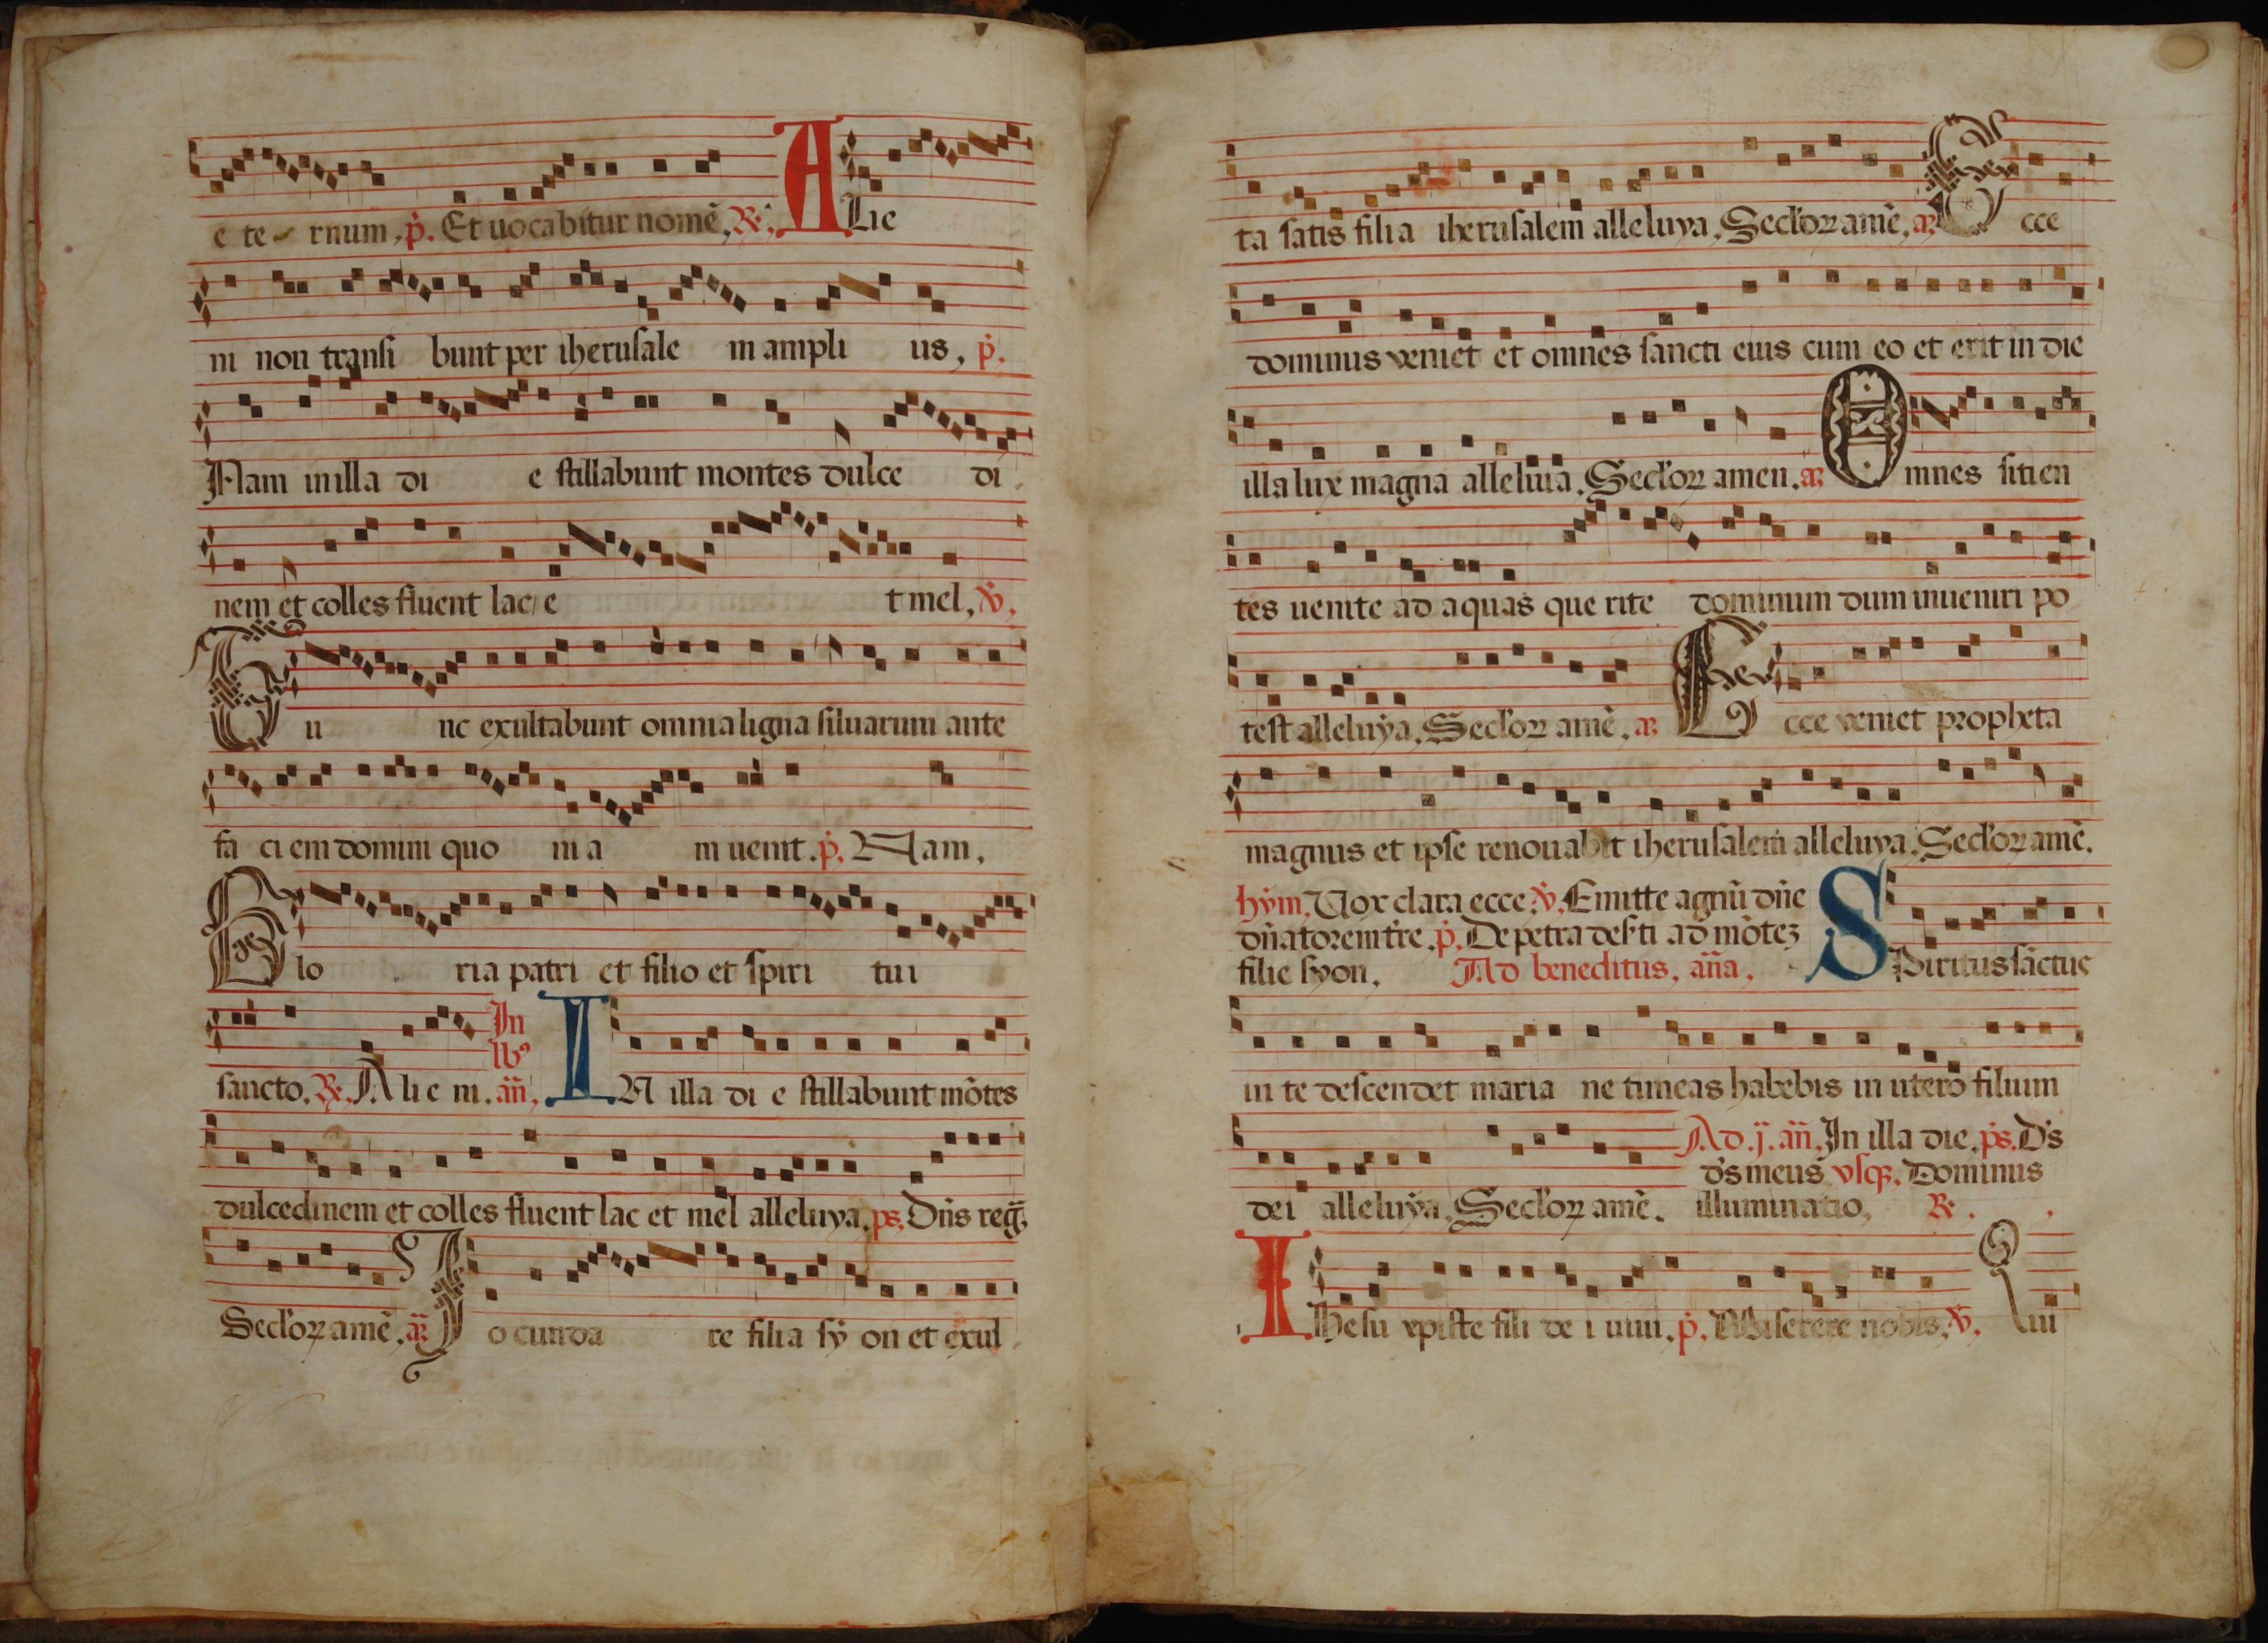 e te rnum, p̉. Et uocabitur nomẽ, R. ALie
ni non transi bunt per iherusale m ampli us, p̉.
Nam in illa di e stillabunt montes dulce di
nem et colles fluent lac, e t mel, v̉.
Tu nc exultabunt omnia ligna siluarum ante
fa ci em domini quo ni a m uenit. p̉. Nam,
Glo ria patri et filio et spiri tui
In
lb9
sancto. R. A li e ni. añ, IN illa di e stillabunt mõtes
dulcedinem et colles fluent lac et mel alleluya. ps. Dñs reg̃,
Secl'oꝝ amẽ. añ Io cunda re filia sẏ on et exul
ta satis filia iherusalem alleluya. Secl'oꝝ amẽ, añ Ecce
dominus veniet et omnes sancti eius cum eo et erit in die
illa lux magna alleluia. Secl'oꝝ amen. añ Omnes sitien
tes uenite ad aquas que rite dominum dum inueniri po
test alleluẏa. Secl'oꝝ amẽ. añ Ecce veniet propheta
magnus et ipse renouabit iherusalem alleluya. Secl'oꝝ amẽ.
hẏm. Uox clara ecce. v̉. Emitte agnũ dñe
dñatorem t̉re. p̉. De petra des̉ti ad mõteꝫ
filie syon. Ad beneditus, aña, SPiritus sãctus
in te descendet maria ne timeas habebis in utero filium
Ad .j̈. añ. In illa die. ps. D's
d's meus vsqꝫ. Dominus
dei alleluẏa. Secl'oꝝ amẽ. illuminatio, R.
IHesu xpiste fili de i uiui. p̉. Miserere nobis. v̉. Qui